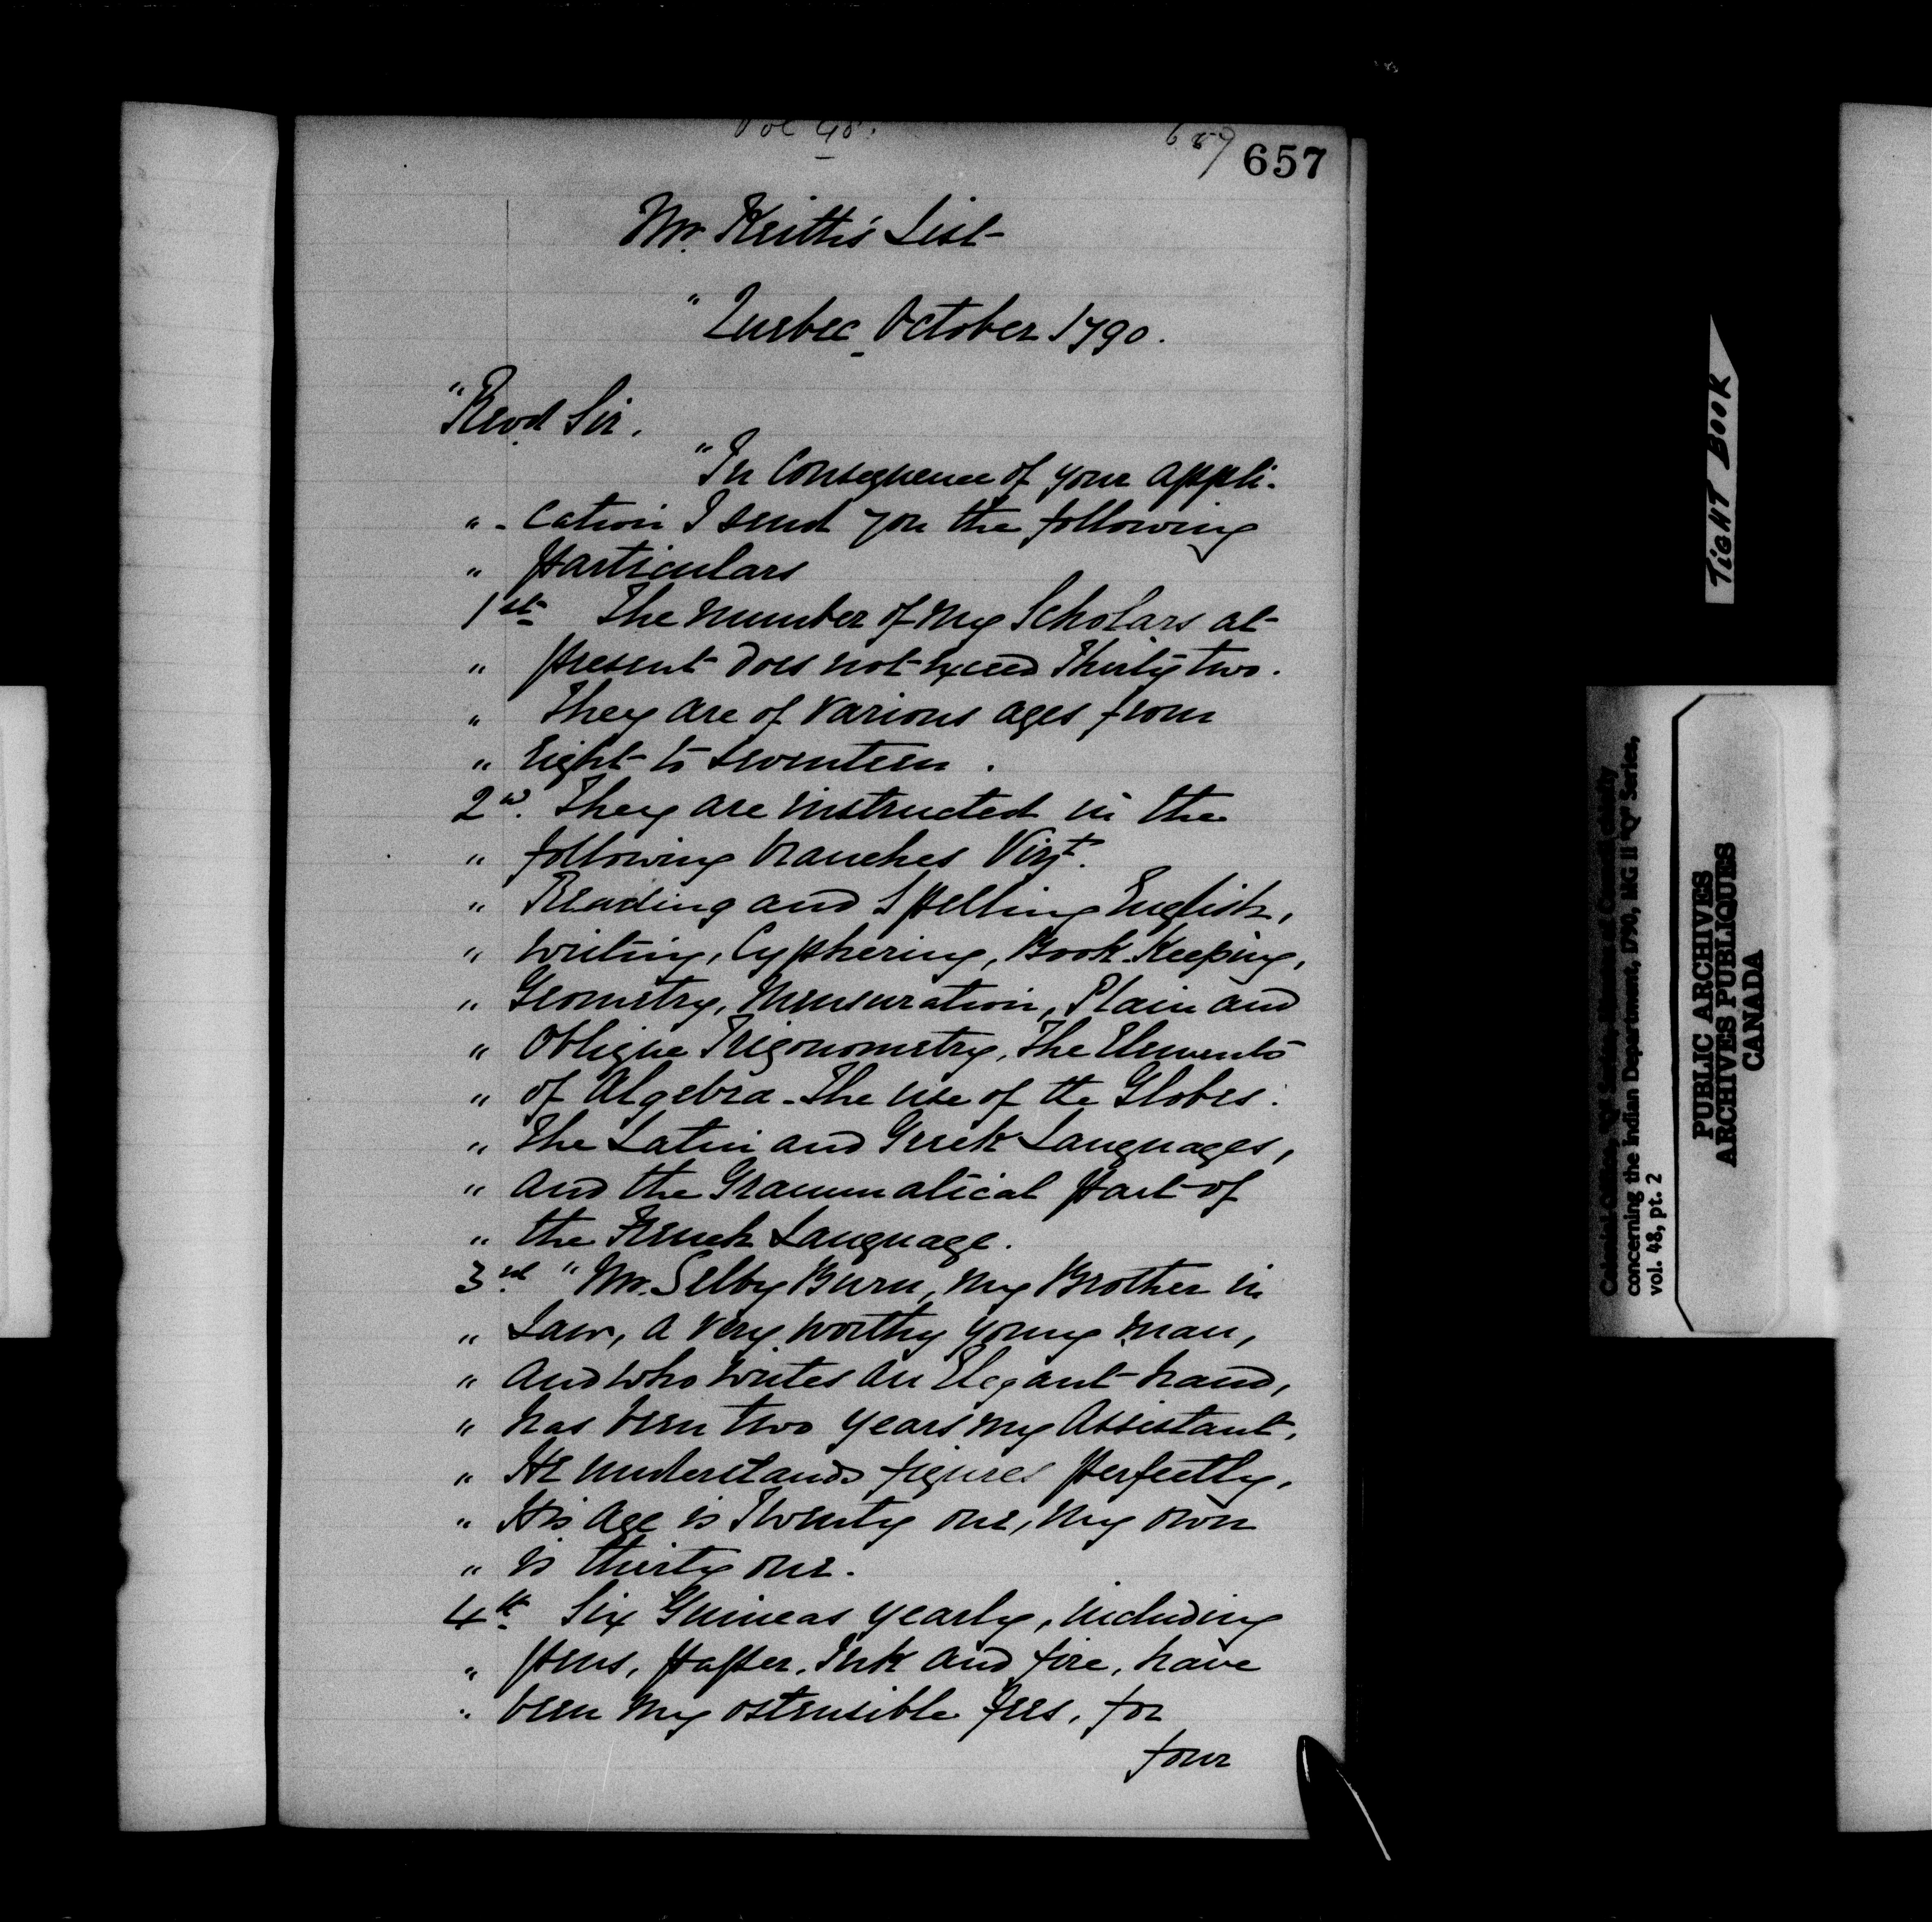 Vol 48.
657
657
Mr. Keith's List
" Quebec October 1790.
" Revd Sir.
" In Consequence of your appli-
" - cation I send you the following
" particulars
1st The number of my Scholars at
" present does not exceed Thirty two.
" They are of various ages from
" Eight to seventeen.
2nd. They are instructed in the
" following branches Vizt.
" Reading and Spelling English,
" writing, Cyphering, Book Keeping,
" Geometry, Mensuration, Plain and
" Oblique Trigonometry, The Elements
" of Algebra - The use of the Globes:
" The Latin and Greek Languages,
" and the Grammatical part of
" the French Language.
3rd " Mr. Selby Burn, my Brother in
" Law, a very worthy young man,
" and who writes an Elegant hand,
" has been two years my Assistant.
" He understands figures perfectly,
" His age is Twenty one, my own
" is thirty one.
4th Six Guineas yearly, including
" pens, paper, Ink and fire, have
" been my ostensible fees, for
four
TIGHT BOOK
concerning the Indian Department, 1790, MG 11 "Q" Series,
vol. 48, pt. 2
PUBLIC ARCHIVES
ARCHIVES PUBLIQUES
CANADA